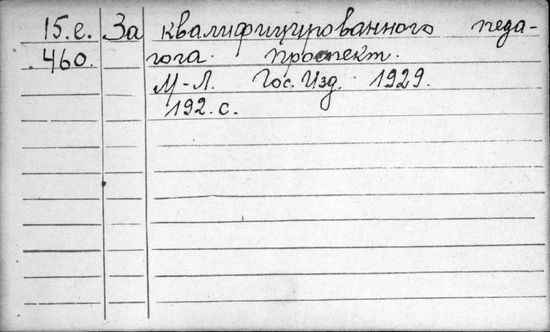 15.е. За квалифицированного педа-
460. гога. проспект.
М-Л. Гос. Изд. 1929.
192. с.